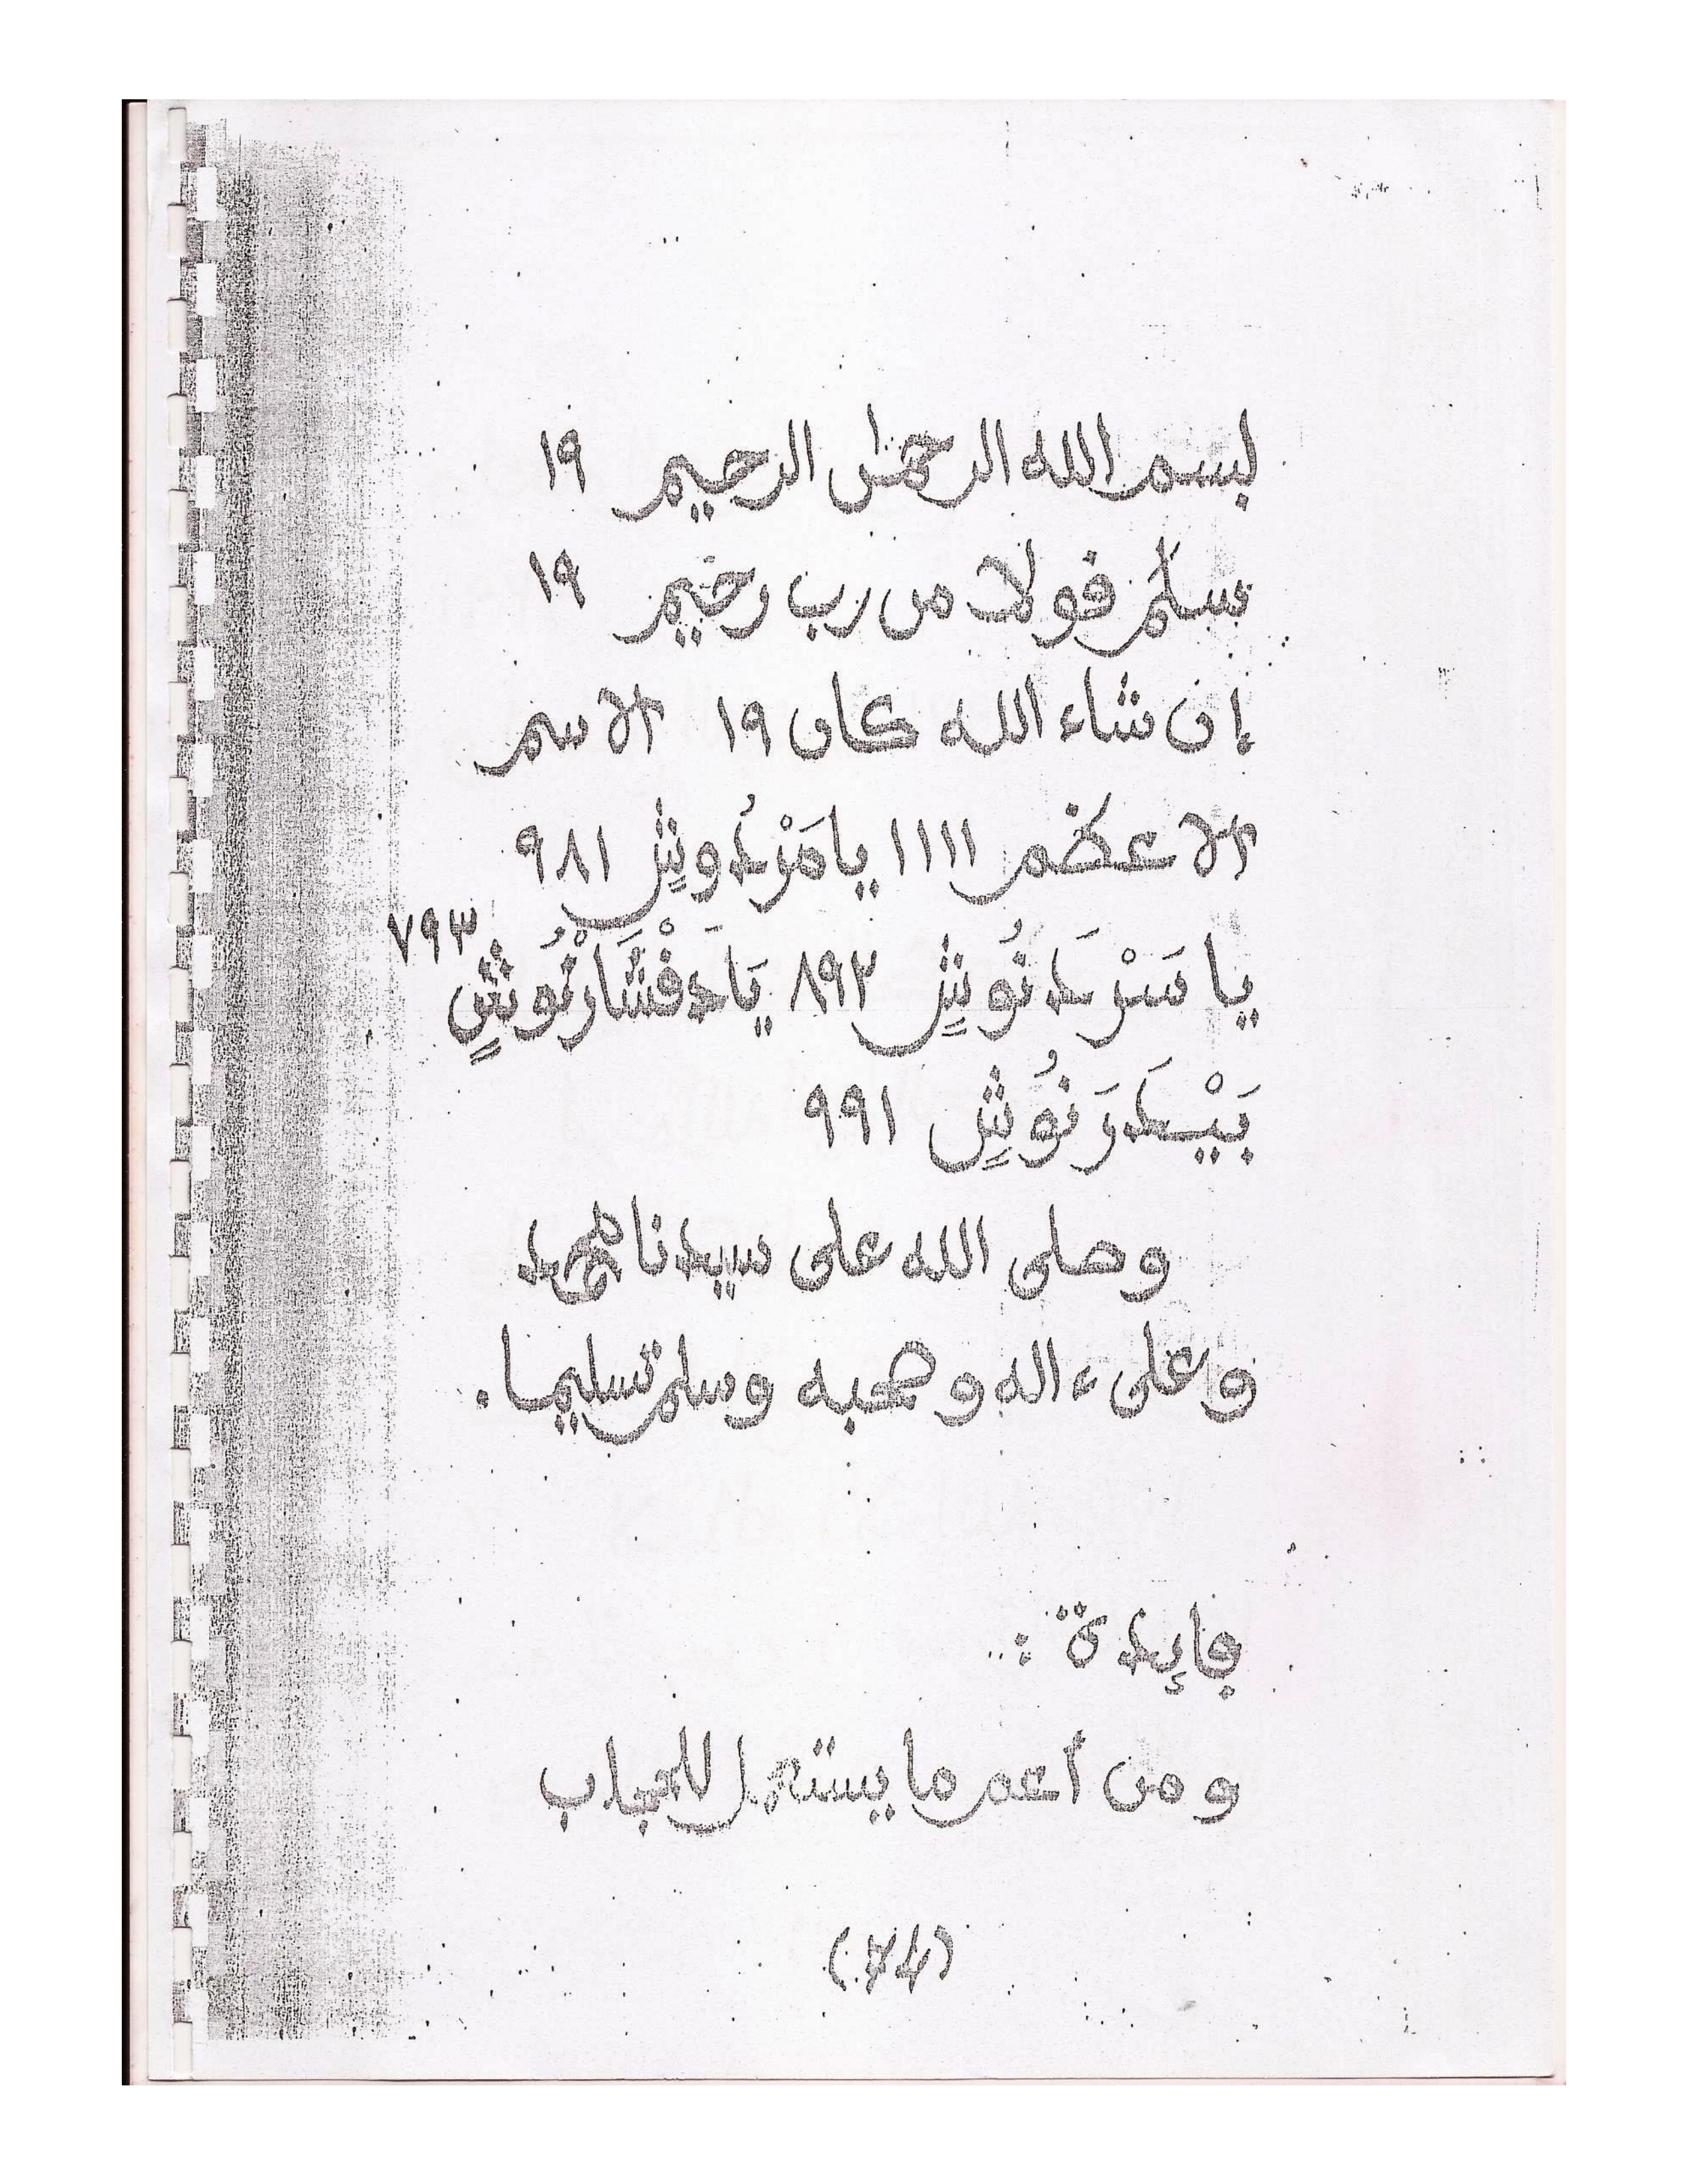 بسم الله الرحمٰن الرحيم ١٩
سلٰم قولا من رب رحيم ١٩
إن شاء الله كان ١٩ الاسم
الاعظم ١١١١ يا مَرْدُوشٍ ٩٨١
يا سَرْدَنُوشٍ ٨٩٢ يَادَفْشَارْنُوشٍ ٧٩٣
بَيْدَرَنُوشٍ ٩٩١
وصلى الله على سيدنا محمد
وعلى ءاله وصحبه وسلم تسليما.
ڢايدة :
ومن أعم ما يستعمل للجلاب